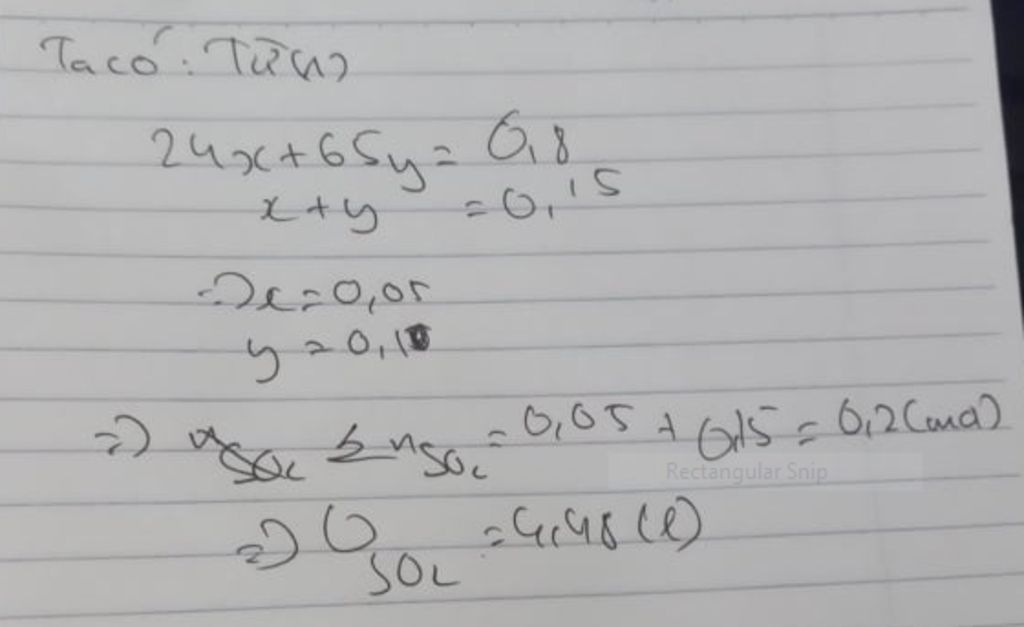 Ta có: Từ (1)
24x + 65y = 6,8
x + y = 0,15
=> x = 0,05
y = 0,1
=> Σn SO2 = 0,05 + 0,15 = 0,2 (mol)
Rectangular Snip
=> V SO2 = 4,48 (l)